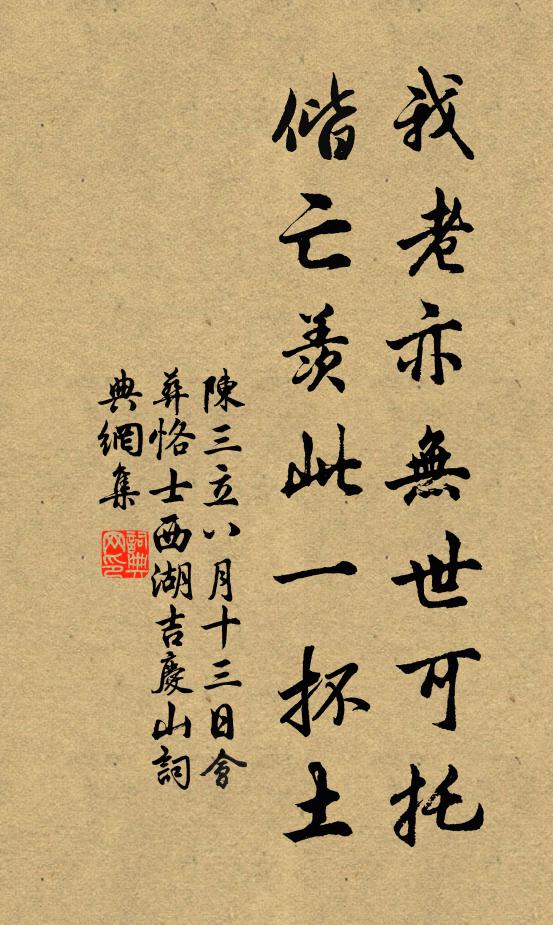 我老亦無世可托
偕亡羨此一抔土
陳三立八月十三日會
葬恪士西湖吉慶山詞
典網集
詞典网印